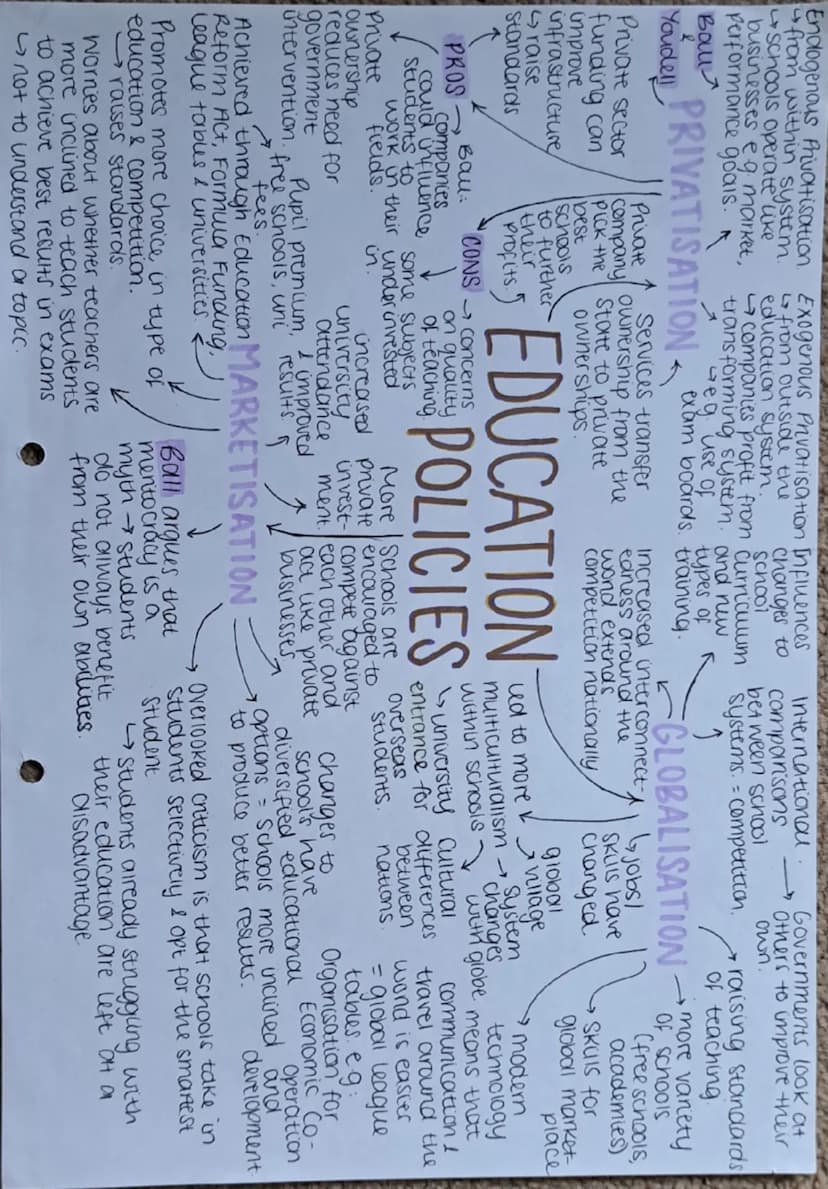 Endogenous Privatisation
↳ from within system.
↳ schools operate like
businesses e.g. market,
performance goals.
Ball
&
Youdell
PRIVATISATION
Exogenous Privatisation
↳ from outside the
education system.
↳ companies profit from
transforming system.
↳ e.g. use of
exam boards.
Private sector
funding can
improve
infrastructure
↳ raise
standards
Private
company
pick the
best
schools
to further
their
profits.
Services transfer
ownership from the
state to private
ownerships.
PROS
→ Ball:
companies
could influence
students to
work in their
fields.
Private
ownership
reduces need for
government
intervention.
CONS
→ concerns
on quality
of teaching.
some subjects
underinvested
in.
EDUCATION
POLICIES
Influences
changes to
school
curriculum
and new
types of
training.
International
comparisons
between school
systems. = competition.
→ Governments look at
others to improve their
own.
raising standards
of teaching.
GLOBALISATION
→ more variety
of schools
(free schools,
academies)
Increased interconnect-
edness around the
world extends
competition nationally
↳ jobs/
skills have
changed
↳ skills for
global market-
place
led to more
multiculturalism
within schools
↳ university
entrance for
overseas
students.
global
village
→ system
changes
with globe
Cultural
differences
between
nations.
modern
technology
means that
communication &
travel around the
world is easier
= global league
tables e.g:
Organisation for
Economic Co-
operation
and
development
Achieved through Education
Reform Act, Formula Funding,
league tables & universities.
free schools, uni
fees.
Pupil premium,
& improved
results
increased
university
attendance
More
private
invest-
ment.
MARKETISATION
Schools are
encouraged to
compete against
each other and
act like private
businesses
changes to
schools have
diversified educational
options = schools more inclined
to produce better results.
Promotes more choice in type of
education & competition.
→ raises standards.
Worries about whether teachers are
more inclined to teach students
to achieve best results in exams
↳ not to understand a topic.
Ball argues that
meritocracy is a
myth → students
do not always benefit
from their own abilities.
Overlooked criticism is that schools take in
students selectively & opt for the smartest
student
↳ students already struggling with
their education are left at a
disadvantage.